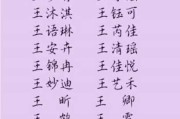 王沐淇 王钰可
王语琳 王芮佳
王安卉 王清瑶
王锦冉 王佳悦
王妙迪 王艺禾
王昕 王卿
王 王